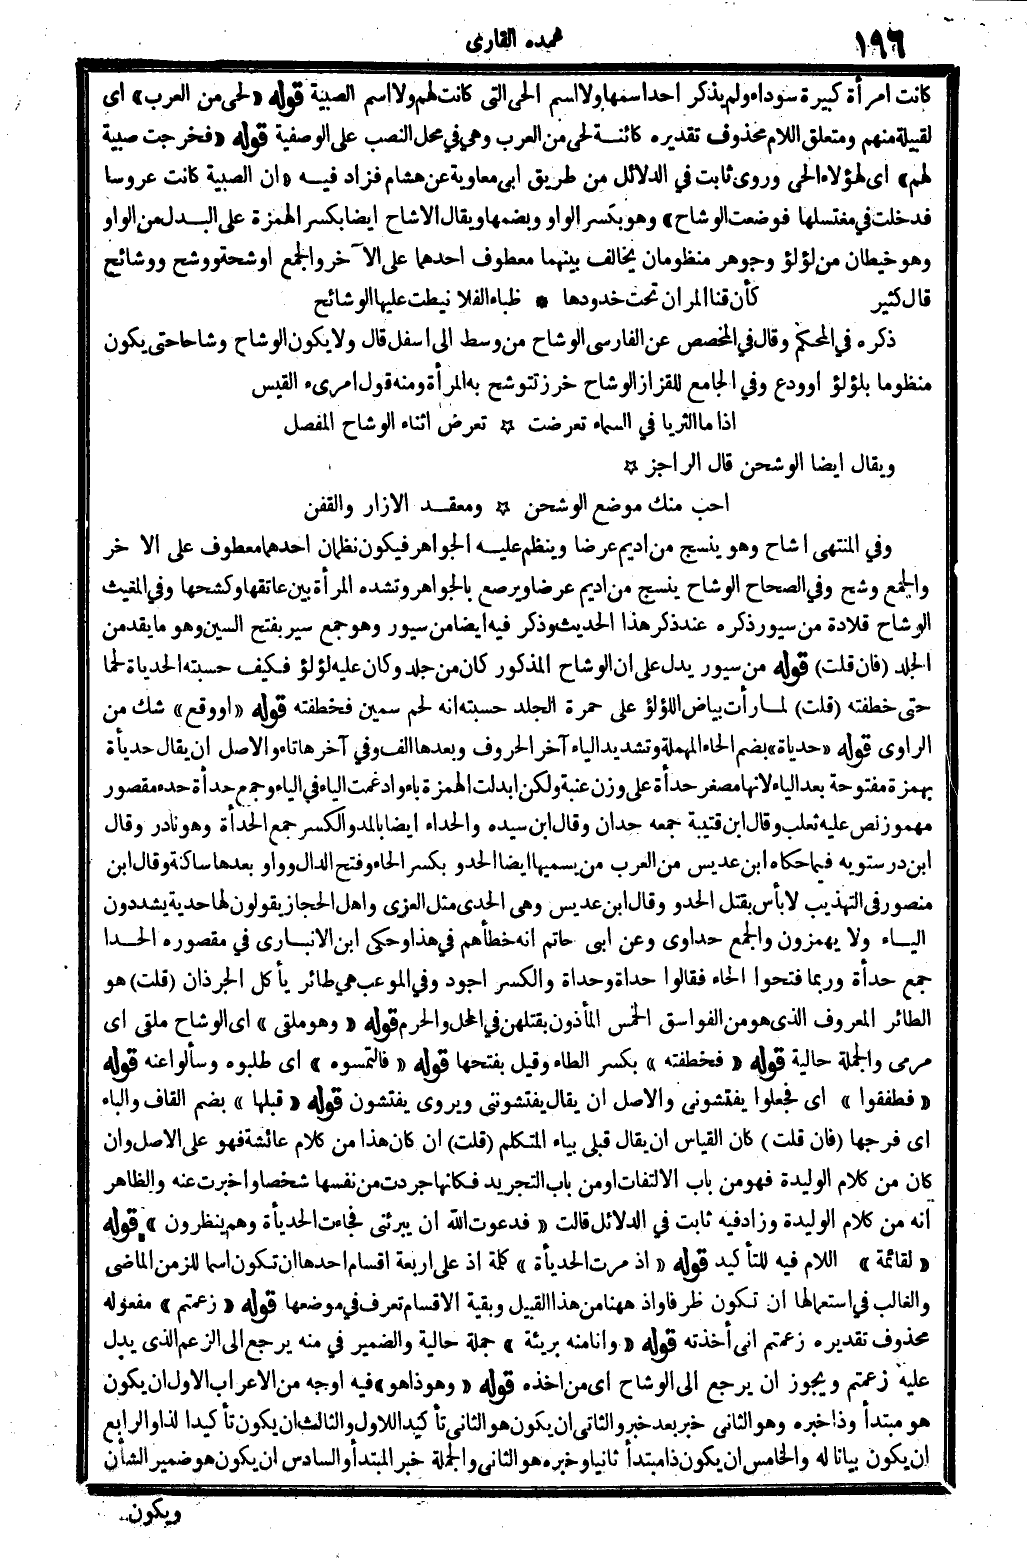 ١٩٦
عمده القارى
كانت امرأة كبيرة سوداء ولم يذكر احد اسمها ولا اسم الحى التى كانت لهم ولا اسم الصبية قوله «لحى من العرب» اى
لقبيلة منهم ومتعلق اللام محذوف تقديره كائنة لحى من العرب وهى في محل النصب على الوصفية قوله «فخرجت صبية
لهم» اى لهؤلاء الحى وروى ثابت في الدلائل من طريق ابى معاوية عن هشام فزاد فيه «ان الصبية كانت عروسا
فدخلت في مغتسلها فوضعت الوشاح» وهو بكسر الواو وبضمها ويقال الاشاح ايضا بكسر الهمزة على البدل من الواو
وهو خيطان من لؤلؤ وجوهر منظومان يخالف بينهما معطوف احدهما على الآخر والجمع اوشحة ووشح ووشائح
قال كثير كأن قنا المران تحت خدودها * ظباء الفلا نيطت عليها الوشائح
ذكره في المحكم وقال في المخصص عن الفارسى الوشاح من وسط الى اسفل قال ولا يكون الوشاح وشاحا حتى يكون
منظوما بلؤلؤ اوودع وفي الجامع للقزاز الوشاح خرز تتوشح به المرأة ومنه قول امرىء القيس
اذا ما الثريا في السماء تعرضت ☆ تعرض اثناء الوشاح المفصل
ويقال ايضا الوشحن قال الراجز ☆
احب منك موضع الوشحن ☆ ومعقد الازار والقفن
وفي المنتهى اشاح وهو ينسج من اديم عرضا وينظم عليه الجواهر فيكون نظمان احدهما معطوف على الاخر
والجمع وشح وفي الصحاح الوشاح ينسج من اديم عرضا ويرصع بالجواهر وتشده المرأة بين عاتقها وكشحها وفي المغيث
الوشاح قلادة من سيور ذكره عند ذكر هذا الحديث وذكر فيه ايضا من سيور وهو جمع سير بفتح السين وهو ما يقد من
الجلد (فان قلت) قوله من سيور يدل على ان الوشاح المذكور كان من جلد وكان عليه لؤلؤ فكيف حسبته الحدياة لحما
حتى خطفته (قلت) لما رأت بياض اللؤلؤ على حمرة الجلد حسبته انه لحم سمين فخطفته قوله «اووقع» شك من
الراوى قوله «حدياة» بضم الحاء المهملة وتشديد الياء آخر الحروف وبعدها الف وفي آخرها تاء والاصل ان يقال حديأة
بهمزة مفتوحة بعد الياء لانها مصغر حدأة على وزن عنبة ولكن ابدلت الهمزة ياء وادغمت الياء في الياء وجمع حدأة حدء مقصور
مهموز نص عليه ثعلب وقال ابن قتيبة جمعه حدان وقال ابن سيده والحداء ايضا بالمد والكسر جمع الحدأة وهو نادر وقال
ابن درستويه فيما حكاه ابن عديس من العرب من يسميها ايضا الحدو بكسر الحاء وفتح الدال وواو بعدها ساكنة وقال ابن
منصور فى التهذيب لا بأس بقتل الحدو وقال ابن عديس وهى الحدى مثل العزى واهل الحجاز يقولون لها حدية يشددون
الياء ولا يهمزون والجمع حداوى وعن ابى حاتم انه خطأهم في هذا وحكى ابن الانبارى في مقصوره الحدا
جمع حدأة وربما فتحوا الحاء فقالوا حداة وحداة والكسر اجود وفي الموعب هي طائر يأكل الجرذان (قلت) هو
الطائر المعروف الذى هو من الفواسق الخمس المأذون بقتلهن في الحل والحرم قوله «وهو ملقى» اى الوشاح ملقى اى
مرمى والجملة حالية قوله «فخطفته» بكسر الطاء وقيل بفتحها قوله «فالتمسوه» اى طلبوه وسألوا عنه قوله
«فطفقوا» اى فجعلوا يفتشونى والاصل ان يقال يفتشوننى ويروى يفتشون قوله «قبلها» بضم القاف والباء
اى فرجها (فان قلت) كان القياس ان يقال قبلى بياء المتكلم (قلت) ان كان هذا من كلام عائشة فهو على الاصل وان
كان من كلام الوليدة فهو من باب الالتفات او من باب التجريد فكانها جردت من نفسها شخصا واخبرت عنه والظاهر
انه من كلام الوليدة وزاد فيه ثابت في الدلائل قالت «فدعوت الله ان يبرئنى فجاءت الحديأة وهم ينظرون» قوله
«لقائمة» اللام فيه للتأكيد قوله «اذ مرت الحديأة» كلمة اذ على اربعة اقسام احدها ان تكون اسما للزمن الماضى
والغالب في استعمالها ان تكون ظرفا واذ ههنا من هذا القبيل وبقية الاقسام تعرف في موضعها قوله «زعمتم» مفعوله
محذوف تقديره زعمتم انى أخذته قوله «وانا منه بريئة» جملة حالية والضمير في منه يرجع الى الزعم الذى يدل
عليه زعمتم ويجوز ان يرجع الى الوشاح اى من اخذه قوله «وهو ذا هو» فيه اوجه من الاعراب الاول ان يكون
هو مبتدأ وذا خبره وهو الثانى خبر بعد خبر والثانى ان يكون هو الثانى تأكيدا للاول والثالث ان يكون تأكيدا لذا والرابع
ان يكون بيانا له والخامس ان يكون ذا مبتدأ ثانيا وخبره هو الثانى والجملة خبر المبتدأ والسادس ان يكون هو ضمير الشأن
ويكون